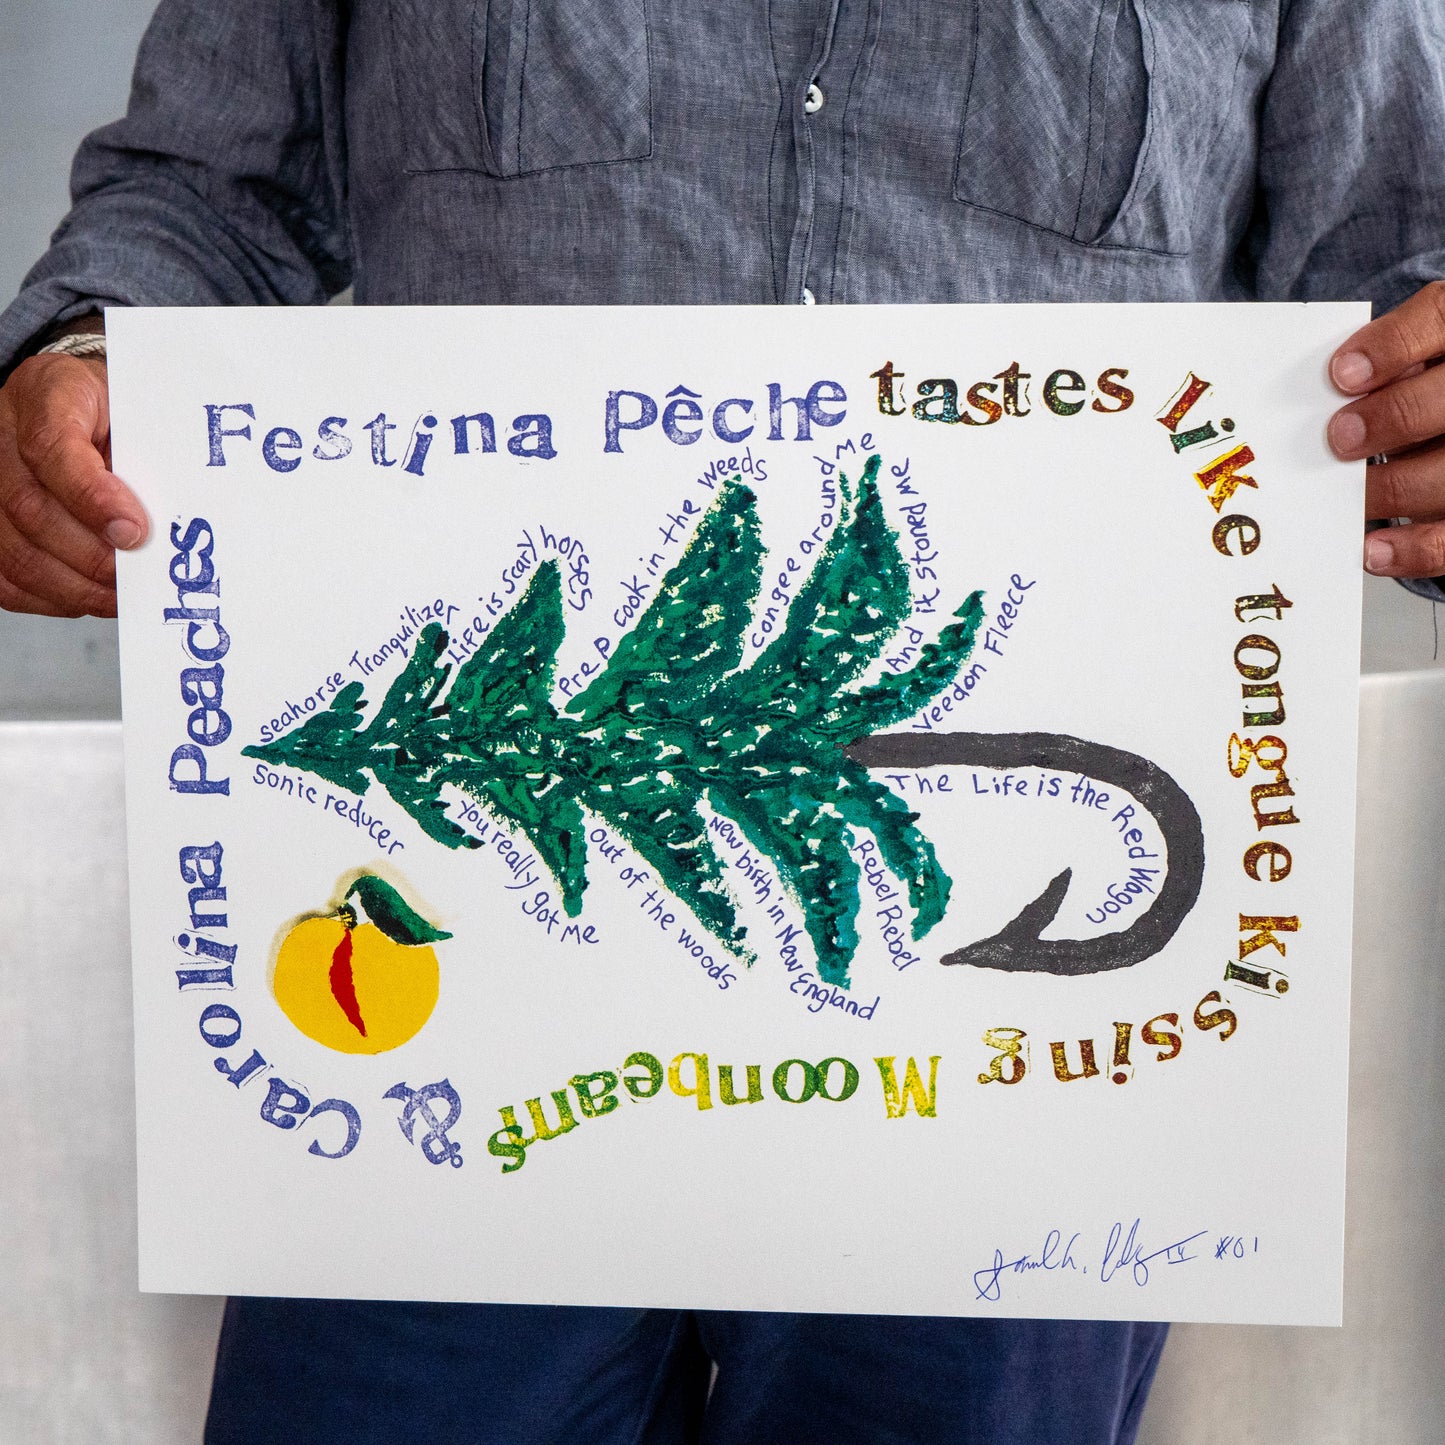 Festina Pêche tastes Like tongue kissing Moonbeans & Carolina Peaches
seahorse Tranquilizer
Life is scary horses
Prep cook in the weeds
congee around me
And it stoned me
Veedon Fleece
The Life is the Red Wagon
Rebel Rebel
New bith in New England
out of the woods
You really got me
sonic reducer
#01